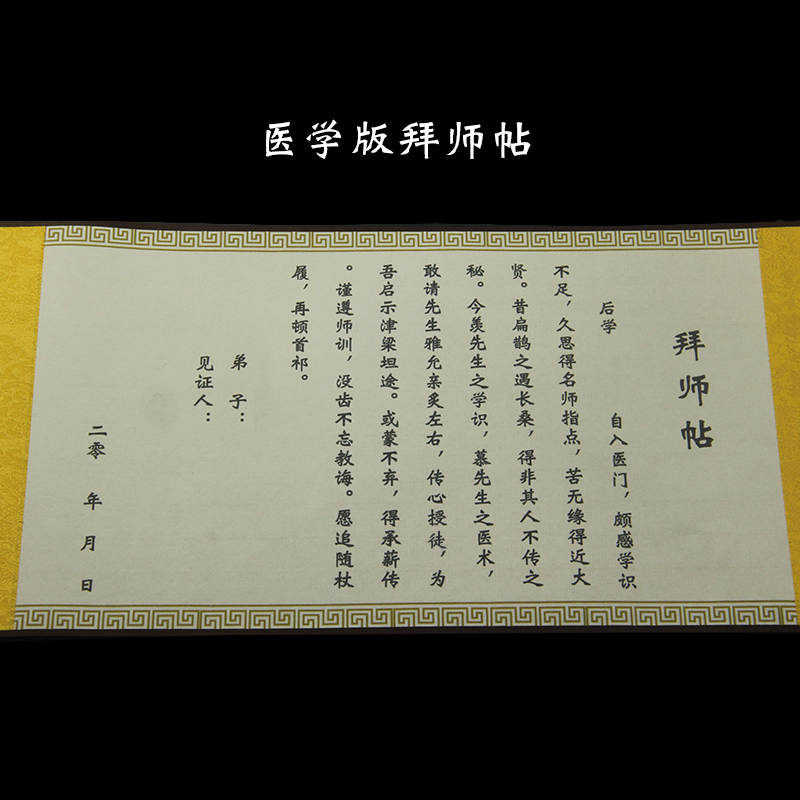 医学版拜师帖
拜师帖
后学 自入医门，颇感学识
不足，久思得名师指点，苦无缘得近大
贤。昔扁鹊之遇长桑，得非其人不传之
秘。今羡先生之学识，慕先生之医术，
敢请先生雅允亲炙左右，传心授徒，为
吾启示津梁坦途。或蒙不弃，得承薪传
。谨遵师训，没齿不忘教诲。愿追随杖
履，再顿首祁。
弟子：
见证人：
二零 年 月 日